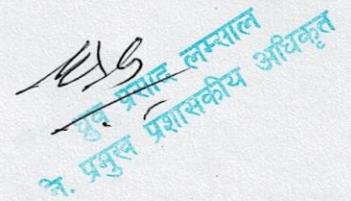 ध्रुव प्रसाद लम्साल
नि. प्रमुख प्रशासकीय अधिकृत